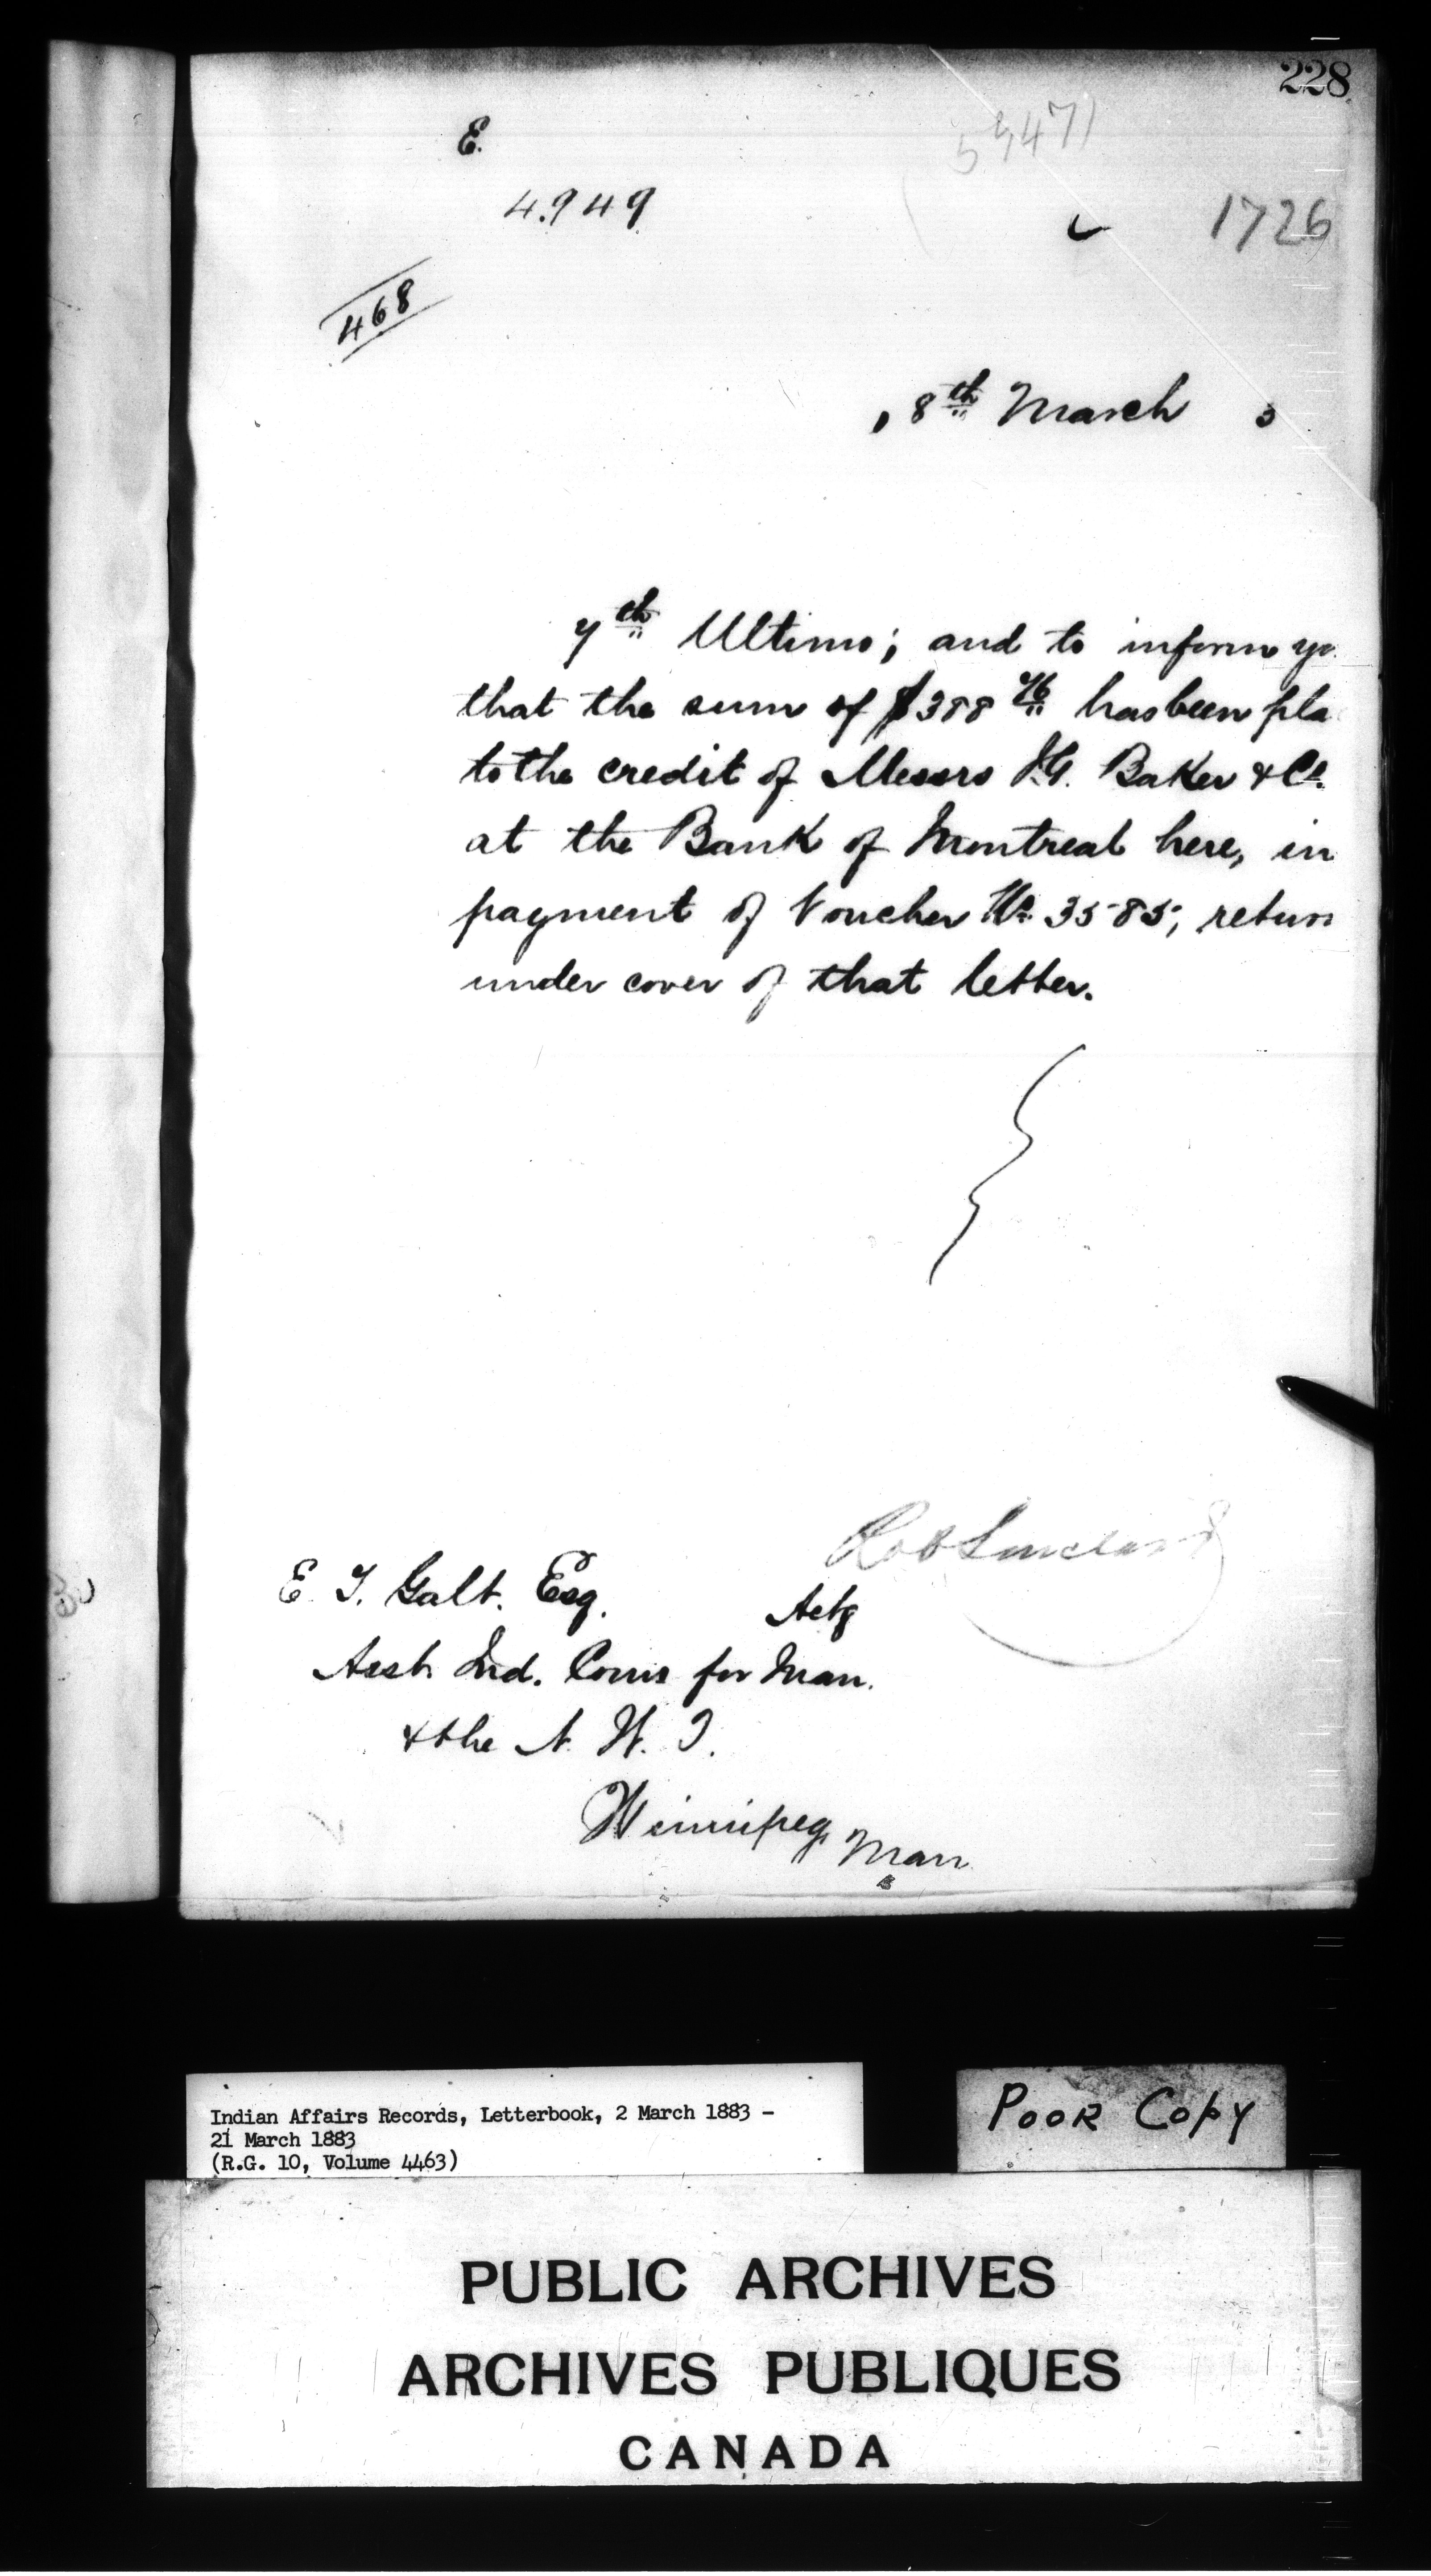 228
E.
4.949
1726
468
8th March 3
7th Ultimo; and to inform yo
that the sum of $388 76 has been pla
to the credit of Messrs I.G. Baker & Co.
at the Bank of Montreal here, in
payment of Voucher No. 3585, return
under cover of that letter.
E. T. Galt. Esq.
Actg
Asst. Ind. Comr for Man.
& the N. W. T.
Winnipeg, Man
Indian Affairs Records, Letterbook, 2 March 1883 –
21 March 1883
(R.G. 10, Volume 4463)
POOR COPY
PUBLIC ARCHIVES
ARCHIVES PUBLIQUES
CANADA